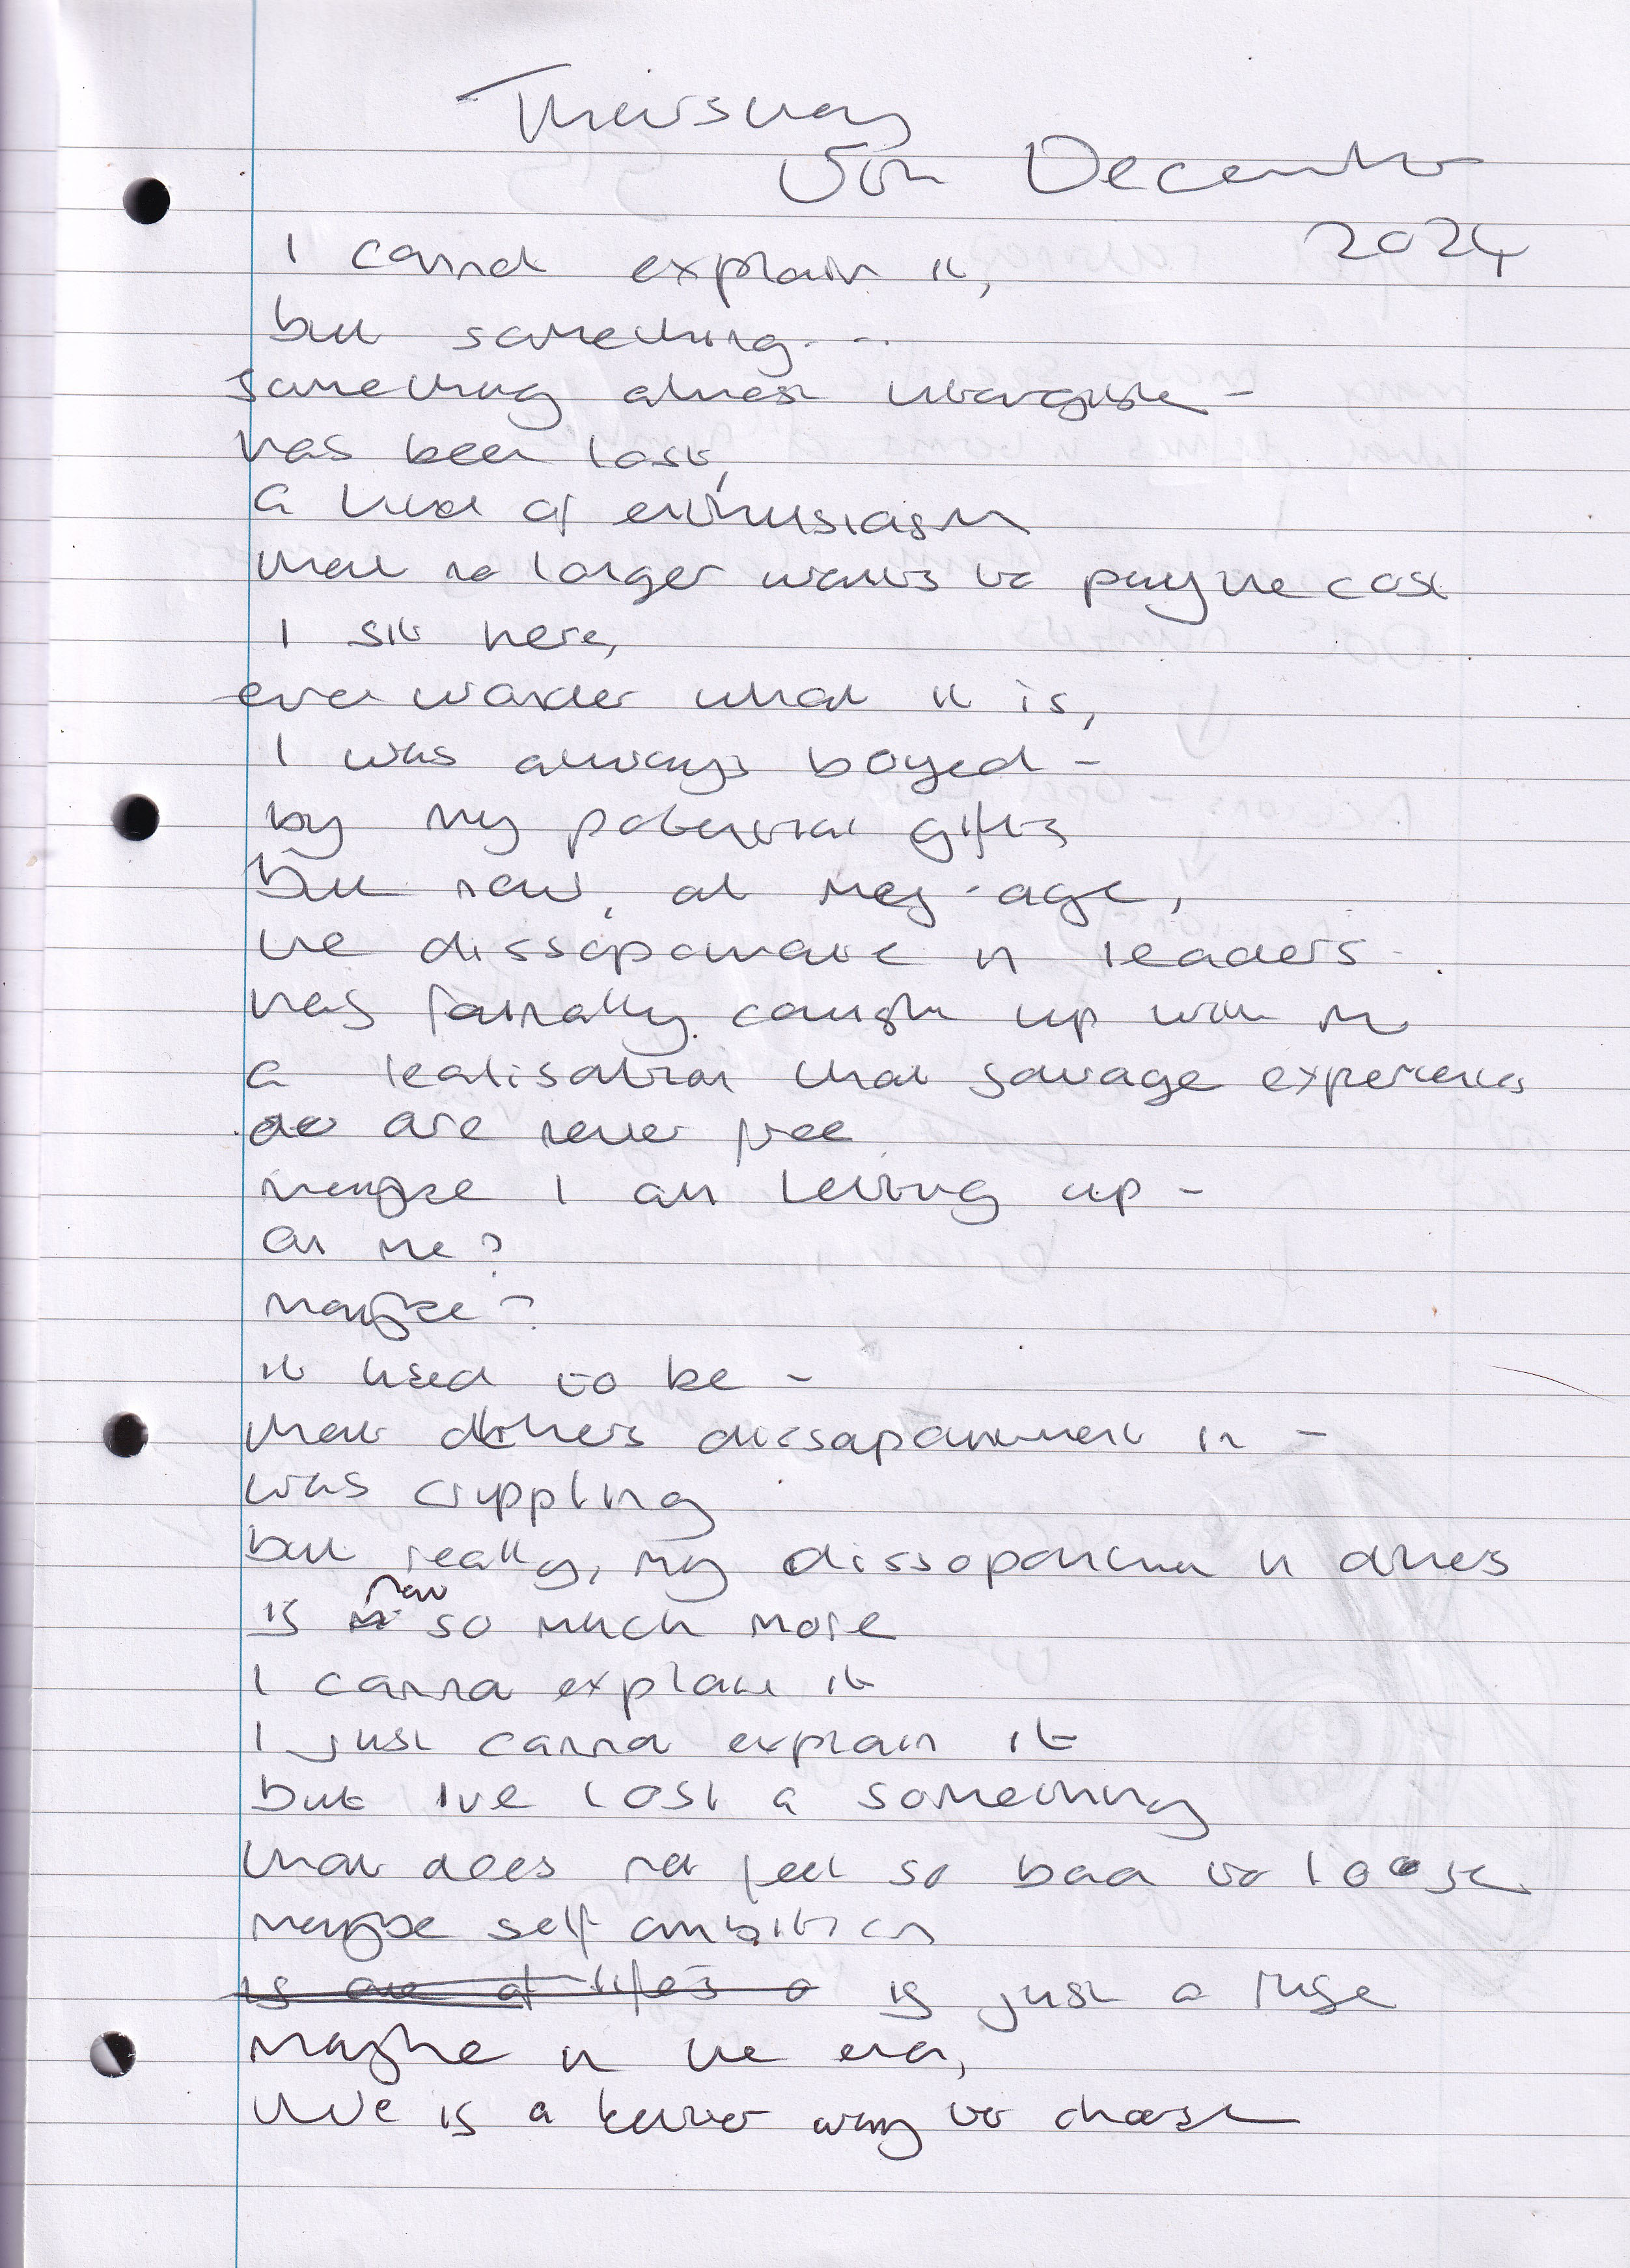 Thursday
5th December
2024
I cannot explain it,
but something...
something almost intangible -
has been lost,
a kind of enthusiasm
that no longer wants to pay the cost
I sit here,
even wonder what it is,
I was always boyed -
by my potential gifts
But now, at my age,
the dissapointment in leaders
has finally caught up with me
a realisation that savage experiences
are never free
maybe I am letting up -
on me?
maybe?
it used to be -
that others dissapointment in -
was crippling
but really, my dissapointment in others
is now so much more
I cannot explain it
I just cannot explain it
but Ive lost a something
that does not feel so bad to loose
maybe self ambition
is one of life's a is just a ruse
maybe in the end,
there is a better way to choose